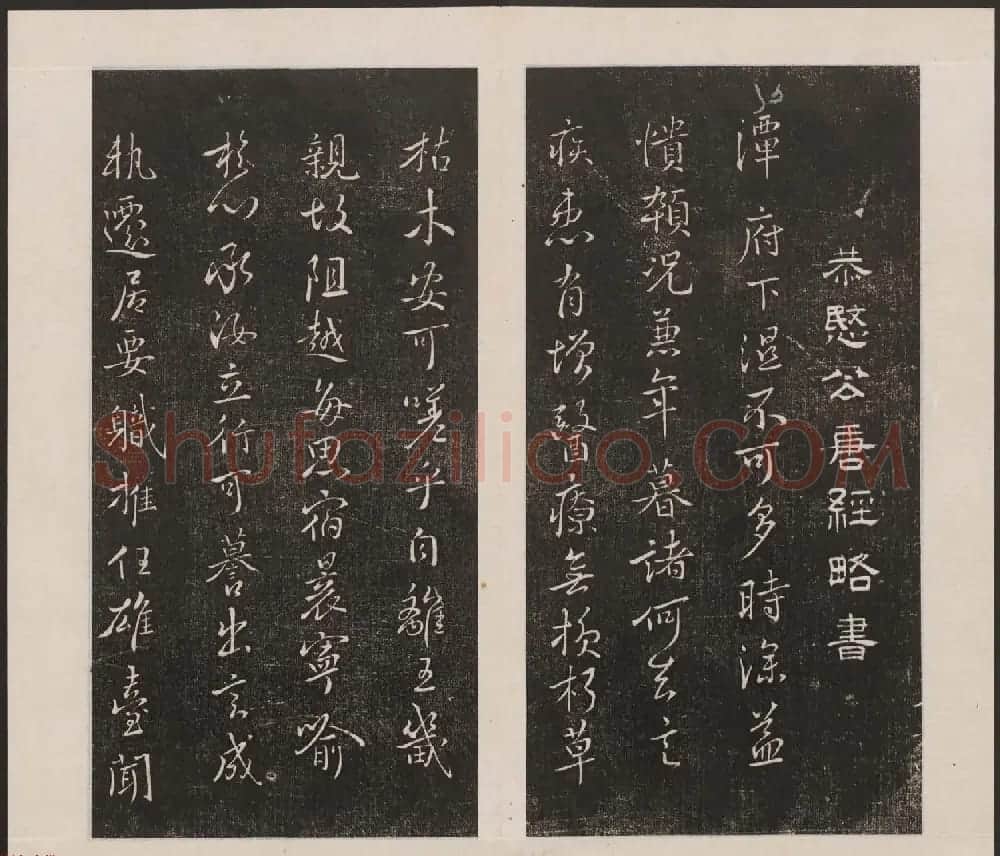 恭愍公唐經略書
潭 府下濕不可多時深益
憒頓况蕭年暮諸何去言
疾患有增醫療無損朽草
枯木安可嗟乎自離五歲
親故阻越每思宿昔寧喻
於心承汝立行可譽出言成
軌還居要職推任雄臺聞
Shufaziliao.COM